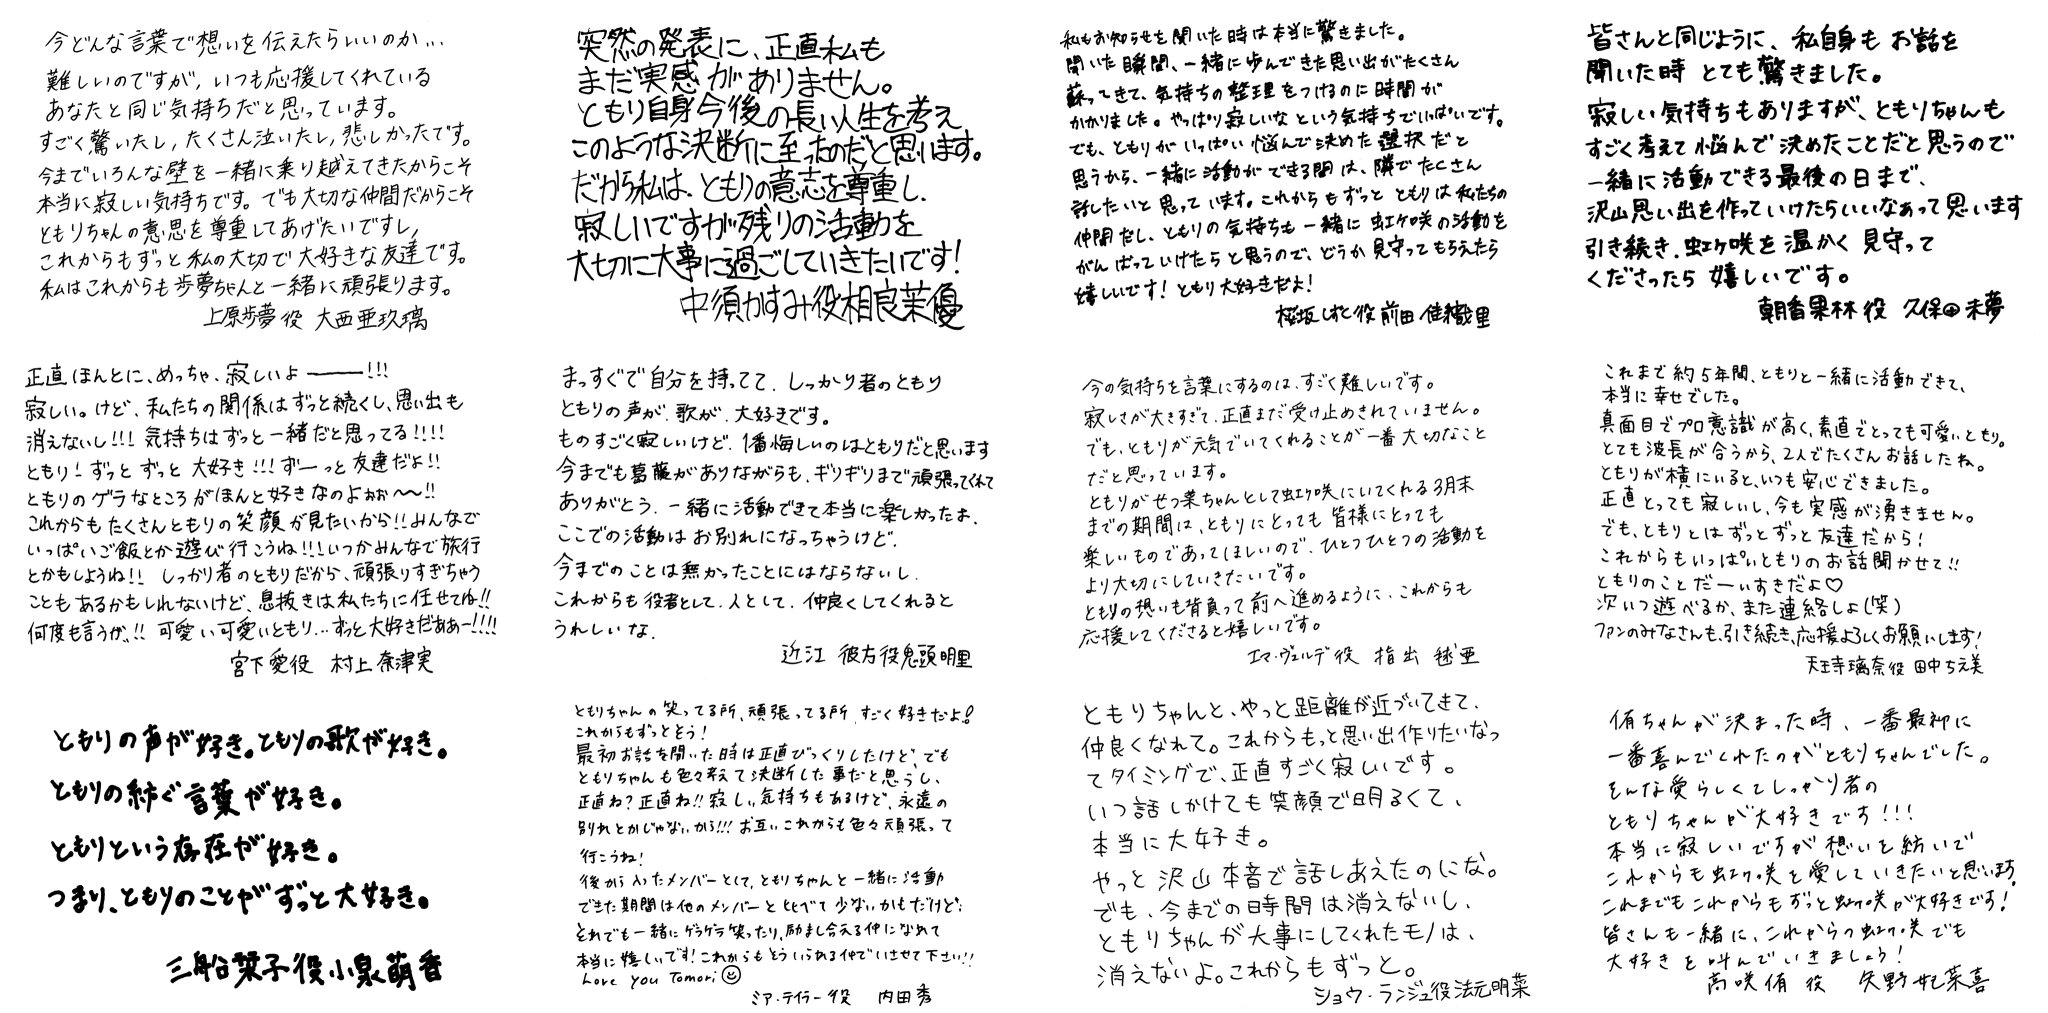 今どんな言葉で想いを伝えたらいいのか...
難しいのですが, いつも応援してくれている
あなたと同じ気持ちだと思っています。
すごく驚いたし, たくさん泣いたし, 悲しかったです。
今までいろんな壁を一緒に乗り越えてきたからこそ
本当に寂しい気持ちです。でも大切な仲間だからこそ
ともりちゃんの意思を尊重してあげたいですし,
これからもずっと私の大切で大好きな友達です。
私はこれからも歩夢ちゃんと一緒に頑張ります。
上原歩夢役 大西亜玖璃
突然の発表に、正直私も
まだ実感がありません。
ともり自身今後の長い人生を考え
このような決断に至ったのだと思います。
だから私は、ともりの意志を尊重し、
寂しいですが残りの活動を
大切に大事に過ごしていきたいです!
中須かすみ役相良茉優
私もお知らせを聞いた時は本当に驚きました。
聞いた瞬間、一緒に歩んできた思い出がたくさん
蘇ってきて、気持ちの整理をつけるのに時間が
かかりました。やっぱり寂しいなという気持ちでいっぱいです。
でも、ともりがいっぱい悩んで決めた選択だと
思うから、一緒に活動ができる間は、隣でたくさん
話したいと思っています。これからもずっとともりは私たちの
仲間だし、ともりの気持ちも一緒に虹ヶ咲の活動を
がんばっていけたらと思うので、どうか見守ってもらえたら
嬉しいです! ともり大好きだよ!
桜坂しずく役 前田佳織里
皆さんと同じように、私自身もお話を
聞いた時とても驚きました。
寂しい気持ちもありますが、ともりちゃんも
すごく考えて悩んで決めたことだと思うので
一緒に活動できる最後の日まで、
沢山思い出を作っていけたらいいなぁって思います
引き続き、虹ヶ咲を温かく見守って
くださったら嬉しいです。
朝香果林役 久保田未夢
正直ほんとに、めっちゃ、寂しいよ―――!!!
寂しい。けど、私たちの関係はずっと続くし、思い出も
消えないし!!! 気持ちはずっと一緒だと思ってる!!!!
ともり! ずっとずっと大好き!!! ずーっと友達だよ!!
ともりのゲラなところがほんと好きなのよぉぉ〜〜!!
これからもたくさんともりの笑顔が見たいから!! みんなで
いっぱいご飯とか遊び行こうね!!! いつかみんなで旅行
とかもしようね!! しっかり者のともりだから、頑張りすぎちゃう
こともあるかもしれないけど、息抜きは私たちに任せてね!!
何度も言うが、!! 可愛い可愛いともり...ずっと大好きだああー!!!!
宮下愛役 村上奈津実
まっすぐで自分を持ってて、しっかり者のともり
ともりの声が、歌が、大好きです。
ものすごく寂しいけど、1番悔しいのはともりだと思います
今までも葛藤がありながらも、ギリギリまで頑張ってくれて
ありがとう。一緒に活動できて本当に楽しかったよ。
ここでの活動はお別れになっちゃうけど、
今までのことは無かったことにはならないし、
これからも役者として、人として、仲良くしてくれると
うれしいな。
近江彼方役鬼頭明里
今の気持ちを言葉にするのは、すごく難しいです。
寂しさが大きすぎて、正直まだ受け止めきれていません。
でも、ともりが元気でいてくれることが一番大切なこと
だと思っています。
ともりがせつ菜ちゃんとして虹ヶ咲にいてくれる3月末
までの期間は、ともりにとっても皆様にとっても
楽しいものであってほしいので、ひとつひとつの活動を
より大切にしていきたいです。
ともりの想いも背負って前へ進めるように、これからも
応援してくださると嬉しいです。
エマ・ヴェルデ役 指出毬亜
これまで約5年間、ともりと一緒に活動できて、
本当に幸せでした。
真面目でプロ意識が高く、素直でとっても可愛いともり。
とても波長が合うから、2人でたくさんお話したね。
ともりが横にいると、いつも安心できました。
正直とっても寂しいし、今も実感が湧きません。
でも、ともりとはずっとずっと友達だから!
これからもいっぱいともりのお話聞かせて!!
ともりのことだーいすきだよ♡
次いつ遊べるか、また連絡しよ(笑)
ファンのみなさんも、引き続き、応援よろしくお願いします!
天王寺璃奈役 田中ちえ美
ともりの声が好き。ともりの歌が好き。
ともりの紡ぐ言葉が好き。
ともりという存在が好き。
つまり、ともりのことがずっと大好き。
三船栞子役小泉萌香
ともりちゃんの笑ってる所、頑張ってる所、すごく好きだよ!
これからもずっとそう!
最初お話を聞いた時は正直びっくりしたけど、でも
ともりちゃんも色々考えて決断した事だと思うし、
正直ね?正直ね!! 寂しい気持ちもあるけど、永遠の
別れとかじゃないから!!! お互いこれからも色々頑張って
行こうね!
後から入ったメンバーとして、ともりちゃんと一緒に活動
できた期間は他のメンバーと比べて少ないかもだけど、
それでも一緒にゲラゲラ笑ったり、励まし合える仲になれて
本当に嬉しいです! これからもそういられる仲でいさせて下さい!!
Love you Tomori☺
ミア・テイラー役 内田秀
ともりちゃんと、やっと距離が近づいてきて、
仲良くなれて。これからもっと思い出作りたいなっ
てタイミングで、正直すごく寂しいです。
いつ話しかけても笑顔で明るくて、
本当に大好き。
やっと沢山本音で話しあえたのにな。
でも、今までの時間は消えないし、
ともりちゃんが大事にしてくれたモノは、
消えないよ。これからもずっと。
ショウ・ランジュ役法元明菜
侑ちゃんが決まった時、一番最初に
一番喜んでくれたのがともりちゃんでした。
そんな愛らしくてしっかり者の
ともりちゃんが大好きです!!!
本当に寂しいですが想いを紡いで
これからも虹ヶ咲を愛していきたいと思います。
これまでもこれからもずっと虹ヶ咲が大好きです!
皆さんも一緒に、これからの虹ヶ咲でも
大好きを叫んでいきましょう!
高咲侑役 矢野妃菜喜